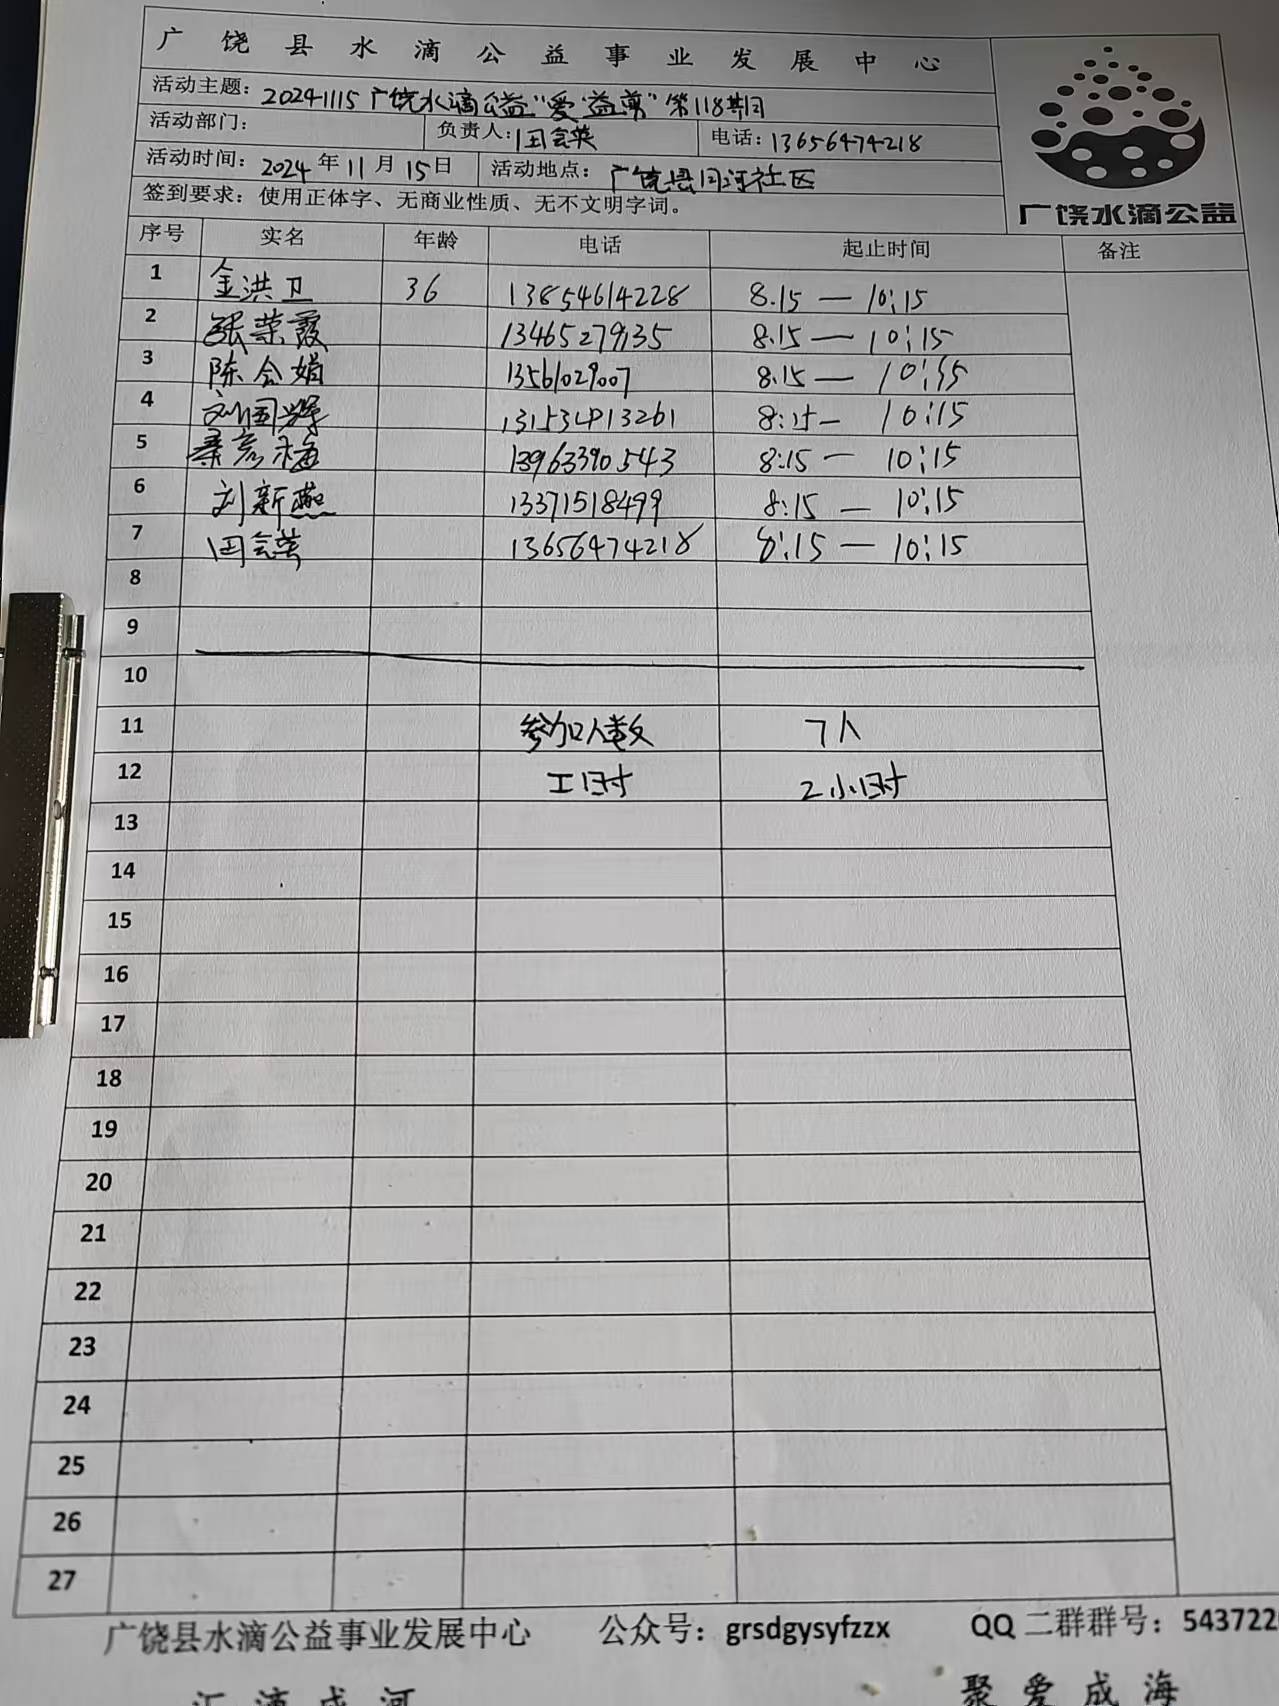 广饶县水滴公益事业发展中心
活动主题：20241115广饶水滴公益“爱益剪”第118期
活动部门： 负责人：田会英 电话：13656474218
活动时间：2024年11月15日 活动地点：广饶县同汪社区
签到要求：使用正体字、无商业性质、无不文明字词。
广饶水滴公益
序号 实名 年龄 电话 起止时间 备注
1 金洪卫 36 13854614228 8.15 — 10:15
2 张荣霞 13465279135 8.15 — 10:15
3 陈会娟 13561029007 8.15 — 10:15
4 刘国辉 13153413261 8:15 — 10:15
5 桑彦梅 13963390543 8:15 — 10:15
6 刘新燕 13371518499 8:15 — 10:15
7 田会英 13656474218 8:15 — 10:15
8
9
10
11 参加人数 7人
12 工时 2小时
13
14
15
16
17
18
19
20
21
22
23
24
25
26
27
广饶县水滴公益事业发展中心 公众号：grsdgysyfzzx QQ二群群号：543722
汇滴成河 聚爱成海